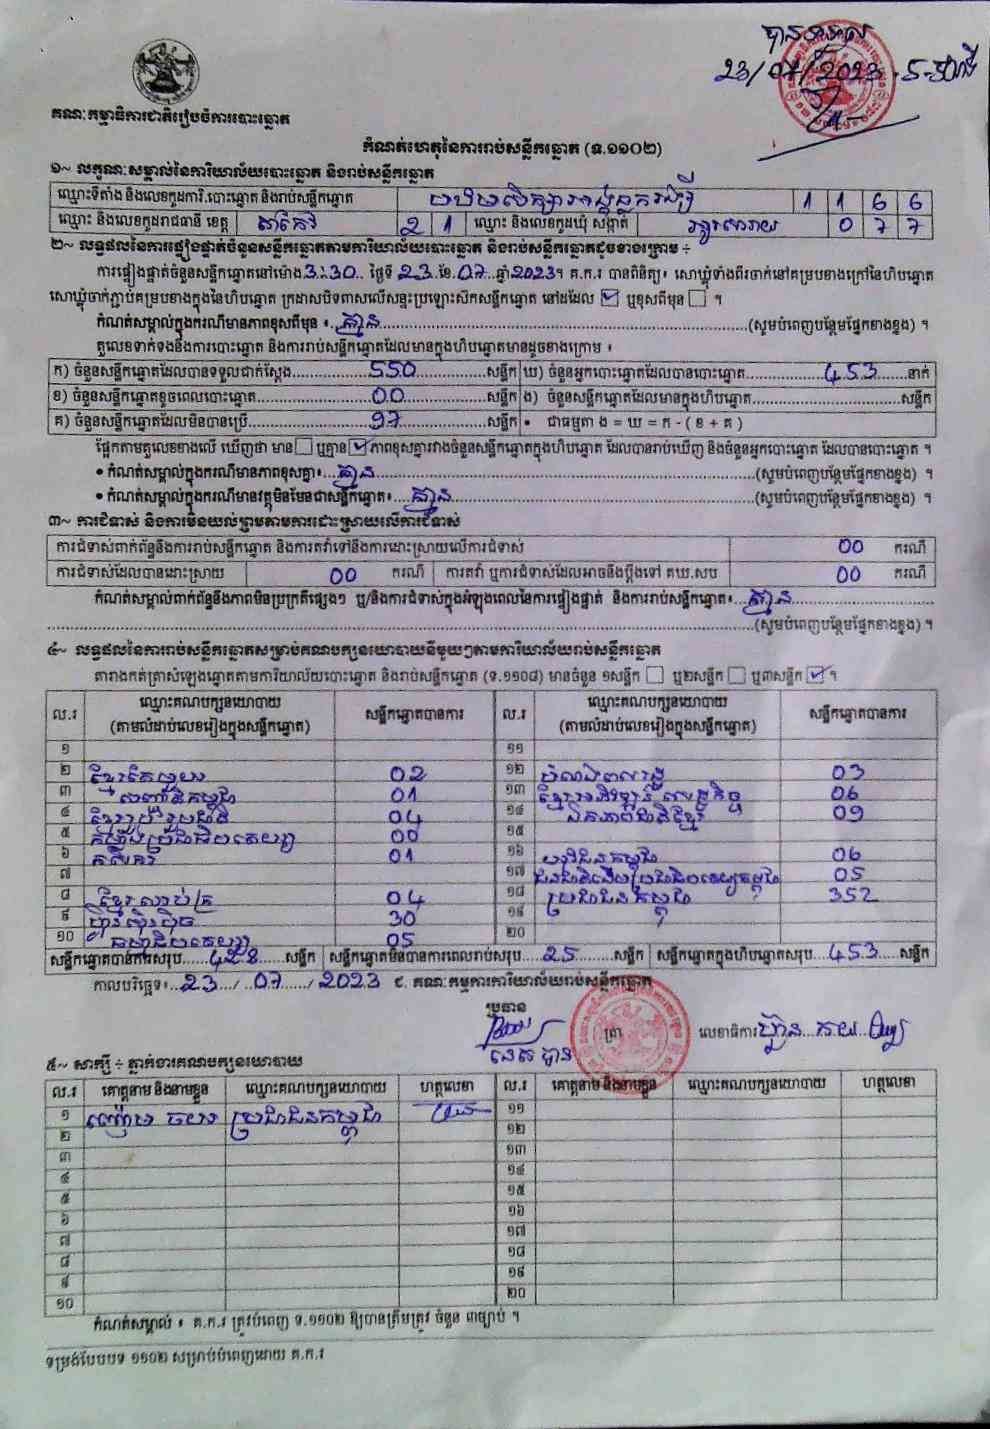 បានទទួល
23/07/2023 . 5-50
គណៈកម្មាធិការជាតិរៀបចំការបោះឆ្នោត
កំណត់ហេតុនៃការរាប់សន្លឹកឆ្នោត (ទ.១១០២)
១~ លក្ខណៈសម្គាល់នៃការិយាល័យបោះឆ្នោត និងរាប់សន្លឹកឆ្នោត
ឈ្មោះទីតាំង និងលេខកូដការិ.បោះឆ្នោត និងរាប់សន្លឹកឆ្នោត 1 1 6 6
ឈ្មោះ និងលេខកូដរាជធានី ខេត្ត តាកែវ 2 1 ឈ្មោះ និងលេខកូដឃុំ សង្កាត់ 0 7 7
២~ លទ្ធផលនៃការផ្ទៀងផ្ទាត់ចំនួនសន្លឹកឆ្នោតតាមការិយាល័យបោះឆ្នោត និងរាប់សន្លឹកឆ្នោតដូចខាងក្រោម ÷
ការផ្ទៀងផ្ទាត់ចំនួនសន្លឹកឆ្នោតនៅម៉ោង 3:30 ថ្ងៃទី 23 ខែ 07 ឆ្នាំ 2023។ គ.ក.រ បានពិនិត្យ៖ សោឃ្លុំទាំងពីរចាក់នៅគម្របខាងក្រៅនៃហិបឆ្នោត
សោឃ្លុំចាក់ភ្ជាប់គម្របខាងក្នុងនៃហិបឆ្នោត ក្រដាសបិទពាសលើសន្ទះប្រឡោះសឹកសន្លឹកឆ្នោត នៅដដែល ☑ ឬខុសពីមុន ☐ ។
កំណត់សម្គាល់ក្នុងករណីមានភាពខុសពីមុន ៖ គ្មាន (សូមបំពេញបន្ថែមផ្នែកខាងខ្នង) ។
តួលេខទាក់ទងនឹងការបោះឆ្នោត និងការរាប់សន្លឹកឆ្នោតដែលមានក្នុងហិបឆ្នោតមានដូចខាងក្រោម ៖
ក) ចំនួនសន្លឹកឆ្នោតដែលបានទទួលជាក់ស្ដែង 550 សន្លឹក ឃ) ចំនួនអ្នកបោះឆ្នោតដែលបានបោះឆ្នោត 453 នាក់
ខ) ចំនួនសន្លឹកឆ្នោតខូចពេលបោះឆ្នោត 00 សន្លឹក ង) ចំនួនសន្លឹកឆ្នោតដែលមានក្នុងហិបឆ្នោត សន្លឹក
គ) ចំនួនសន្លឹកឆ្នោតដែលមិនបានប្រើ 97 សន្លឹក • ជាធម្មតា ង = ឃ = ក - ( ខ + គ )
ផ្អែកតាមតួលេខខាងលើ ឃើញថា មាន ☐ ឬគ្មាន ☑ ភាពខុសគ្នារវាងចំនួនសន្លឹកឆ្នោតក្នុងហិបឆ្នោត ដែលបានរាប់ឃើញ និងចំនួនអ្នកបោះឆ្នោត ដែលបានបោះឆ្នោត ។
• កំណត់សម្គាល់ក្នុងករណីមានភាពខុសគ្នា៖ គ្មាន (សូមបំពេញបន្ថែមផ្នែកខាងខ្នង) ។
• កំណត់សម្គាល់ក្នុងករណីមានវត្ថុមិនមែនជាសន្លឹកឆ្នោត៖ គ្មាន (សូមបំពេញបន្ថែមផ្នែកខាងខ្នង) ។
៣~ ការជំទាស់ និងការមិនយល់ព្រមតាមការដោះស្រាយលើការជំទាស់
ការជំទាស់ពាក់ព័ន្ធនឹងការរាប់សន្លឹកឆ្នោត និងការតវ៉ាទៅនឹងការដោះស្រាយលើការជំទាស់ 00 ករណី
ការជំទាស់ដែលបានដោះស្រាយ 00 ករណី ការតវ៉ា ឬការជំទាស់ដែលអាចនឹងប្ដឹងទៅ គឃ.សប 00 ករណី
កំណត់សម្គាល់ពាក់ព័ន្ធនឹងភាពមិនប្រក្រតីផ្សេងៗ ឬ/និងការជំទាស់ក្នុងអំឡុងពេលនៃការផ្ទៀងផ្ទាត់ និងការរាប់សន្លឹកឆ្នោត៖ គ្មាន
(សូមបំពេញបន្ថែមផ្នែកខាងខ្នង) ។
៤~ លទ្ធផលនៃការរាប់សន្លឹកឆ្នោតសម្រាប់គណបក្សនយោបាយនីមួយៗតាមការិយាល័យរាប់សន្លឹកឆ្នោត
តារាងកត់ត្រាសំឡេងឆ្នោតតាមការិយាល័យបោះឆ្នោត និងរាប់សន្លឹកឆ្នោត (ទ.១១០៨) មានចំនួន ១សន្លឹក ☐ ឬ២សន្លឹក ☐ ឬ៣សន្លឹក ☑ ។
ល.រ ឈ្មោះគណបក្សនយោបាយ សន្លឹកឆ្នោតបានការ ល.រ ឈ្មោះគណបក្សនយោបាយ សន្លឹកឆ្នោតបានការ
(តាមលំដាប់លេខរៀងក្នុងសន្លឹកឆ្នោត) (តាមលំដាប់លេខរៀងក្នុងសន្លឹកឆ្នោត)
១ ១១
២ ខ្មែរតែមួយ 02 ១២ 03
៣ សញ្ជាតិកម្ពុជា 01 ១៣ ខ្មែរអភិវឌ្ឍន៍សេដ្ឋកិច្ច 06
៤ ខ្មែររួបរួមជាតិ 04 ១៤ ឯកភាពជាតិខ្មែរ 09
៥ កម្លាំងប្រជាធិបតេយ្យ 00 ១៥
៦ កសិករ 01 ១៦ យុវជនកម្ពុជា 06
៧ ១៧ ជនជាតិដើមប្រជាធិបតេយ្យកម្ពុជា 05
៨ ខ្មែរឈប់ក្រ 04 ១៨ ប្រជាជនកម្ពុជា 352
៩ ហ្វ៊ុនស៊ិនប៉ិច 30 ១៩
១០ ធម្មាធិបតេយ្យ 05 ២០
សន្លឹកឆ្នោតបានការសរុប 428 សន្លឹក សន្លឹកឆ្នោតមិនបានការពេលរាប់សរុប 25 សន្លឹក សន្លឹកឆ្នោតក្នុងហិបឆ្នោតសរុប 453 សន្លឹក
កាលបរិច្ឆេទ៖ 23 / 07 / 2023 ជ. គណៈកម្មការការិយាល័យរាប់សន្លឹកឆ្នោត
ប្រធាន ត្រា លេខាធិការ
៥~ សាក្សី ÷ ភ្នាក់ងារគណបក្សនយោបាយ
ល.រ គោត្តនាម និងនាមខ្លួន ឈ្មោះគណបក្សនយោបាយ ហត្ថលេខា ល.រ គោត្តនាម និងនាមខ្លួន ឈ្មោះគណបក្សនយោបាយ ហត្ថលេខា
១ ប្រជាជនកម្ពុជា ១១
២ ១២
៣ ១៣
៤ ១៤
៥ ១៥
៦ ១៦
៧ ១៧
៨ ១៨
៩ ១៩
១០ ២០
កំណត់សម្គាល់ ៖ គ.ក.រ ត្រូវបំពេញ ទ.១១០២ ឱ្យបានត្រឹមត្រូវ ចំនួន ៣ច្បាប់ ។
ទម្រង់បែបបទ ១១០២ សម្រាប់បំពេញដោយ គ.ក.រ